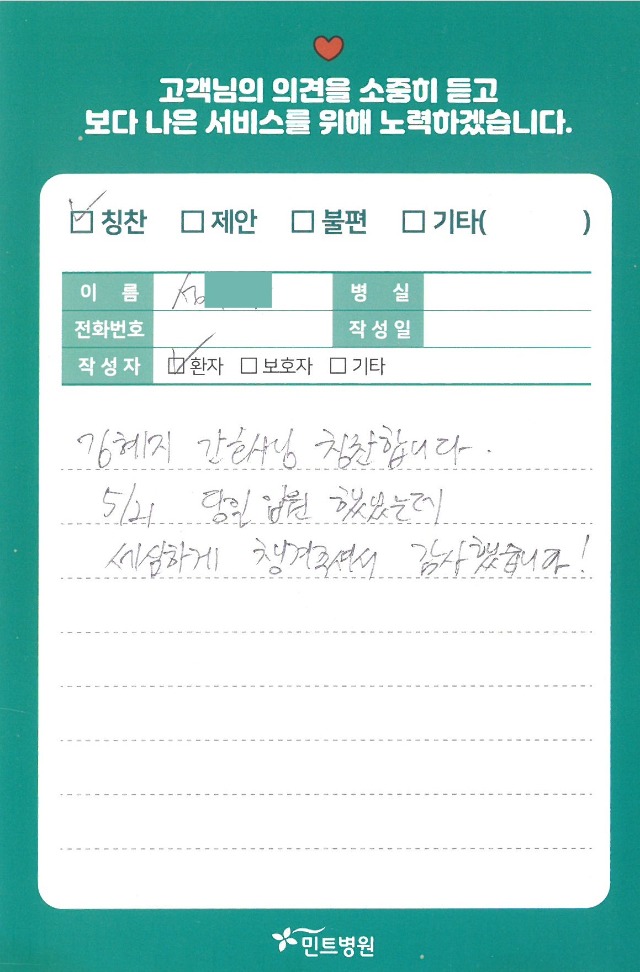 고객님의 의견을 소중히 듣고
보다 나은 서비스를 위해 노력하겠습니다.
☑ 칭찬 ☐ 제안 ☐ 불편 ☐ 기타( )
이 름 성 병 실
전화번호 작성일
작성자 ☑ 환자 ☐ 보호자 ☐ 기타
김혜지 간호사님 칭찬합니다.
5/21 당일 입원 했었는데
세심하게 챙겨주셔서 감사했습니다!
민트병원